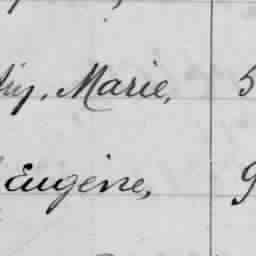 Marie, 5
Eugène, 9